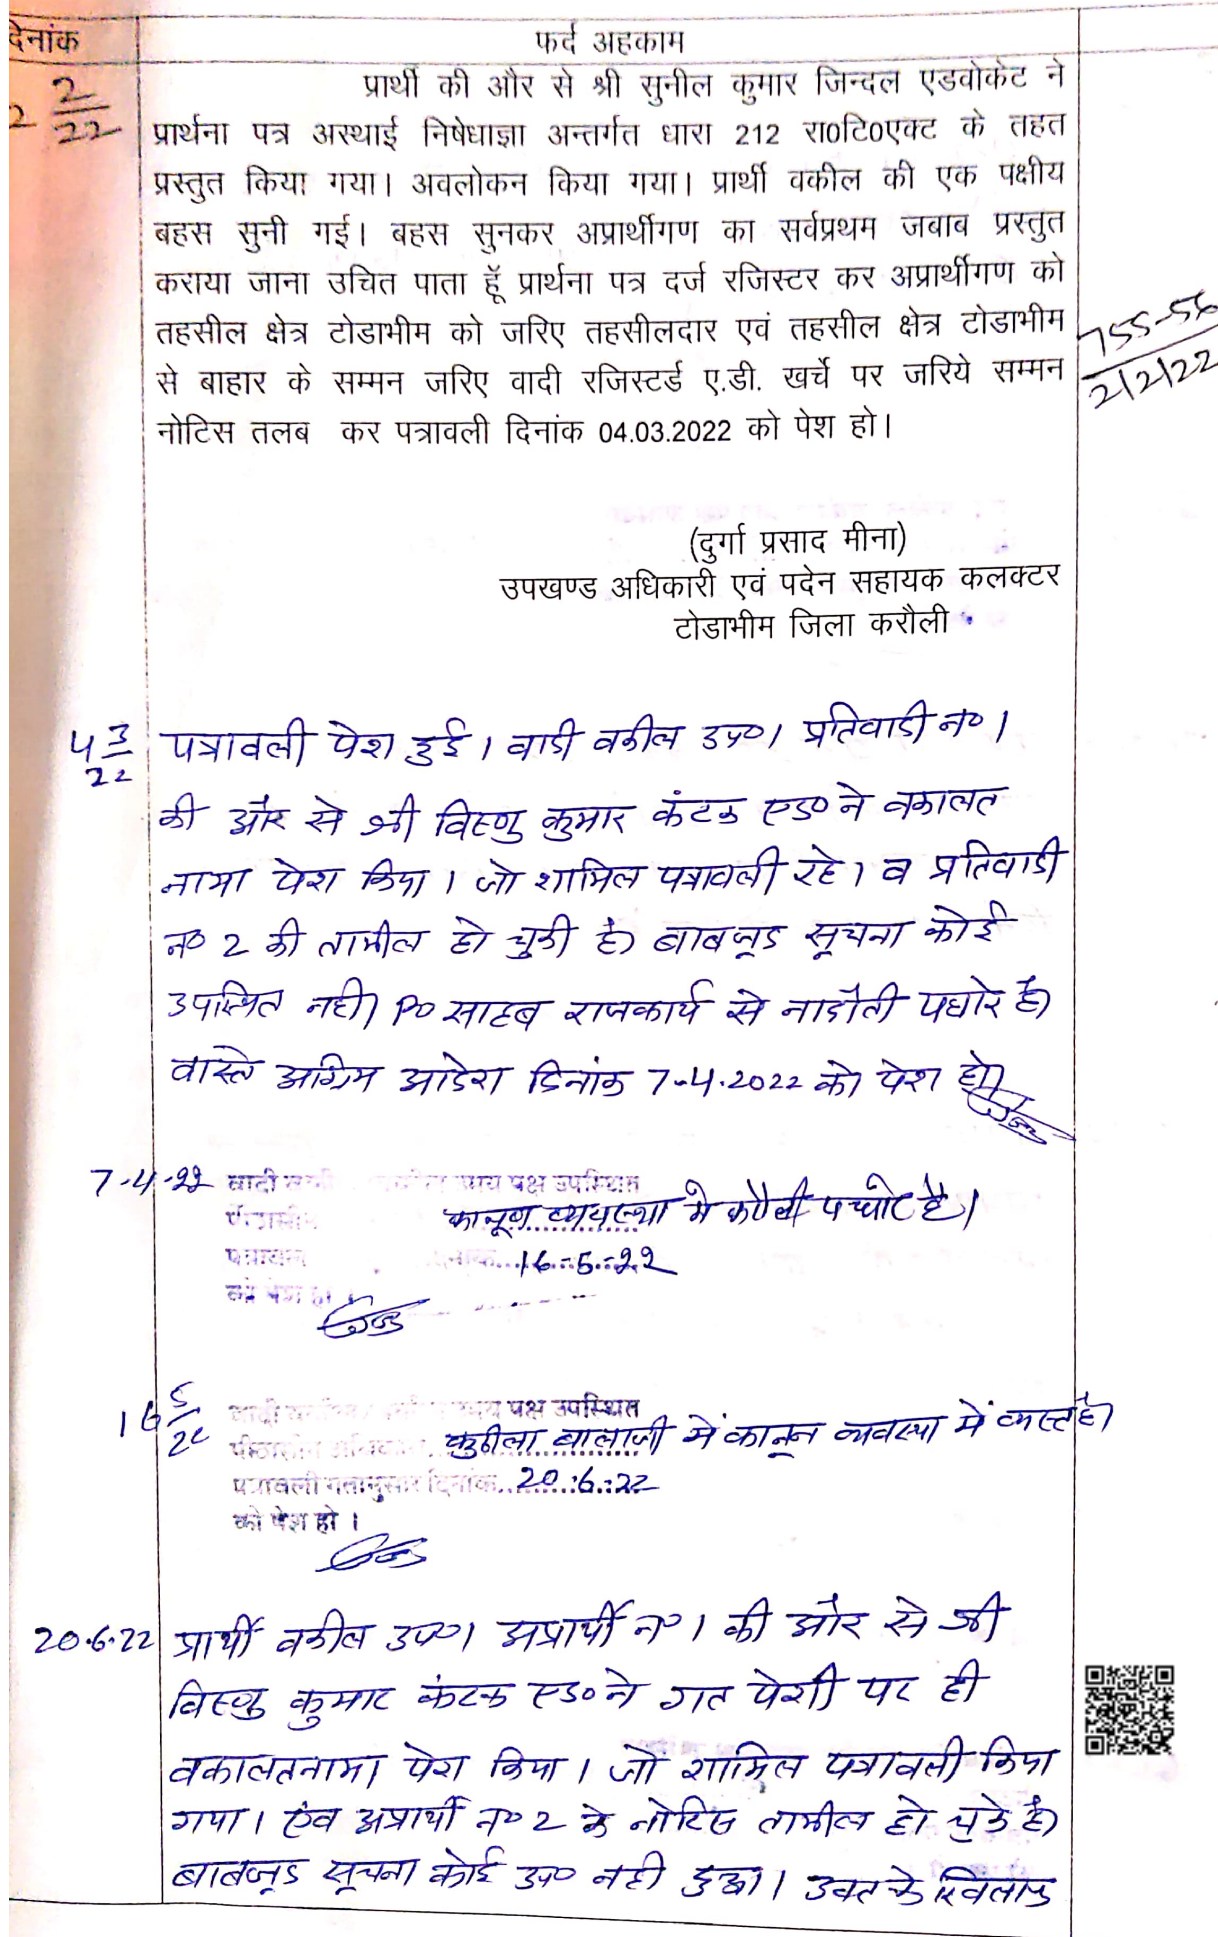 देनांक
फर्द अहकाम
2 2/22
प्रार्थी की और से श्री सुनील कुमार जिन्दल एडवोकेट ने
प्रार्थना पत्र अस्थाई निषेधाज्ञा अन्तर्गत धारा 212 रा0टि0एक्ट के तहत
प्रस्तुत किया गया। अवलोकन किया गया। प्रार्थी वकील की एक पक्षीय
बहस सुनी गई। बहस सुनकर अप्रार्थीगण का सर्वप्रथम जबाब प्रस्तुत
कराया जाना उचित पाता हूॅ प्रार्थना पत्र दर्ज रजिस्टर कर अप्रार्थीगण को
तहसील क्षेत्र टोडाभीम को जरिए तहसीलदार एवं तहसील क्षेत्र टोडाभीम
से बाहार के सम्मन जरिए वादी रजिस्टर्ड ए.डी. खर्चे पर जरिये सम्मन
नोटिस तलब कर पत्रावली दिनांक 04.03.2022 को पेश हो।
755-56
2/2/22
(दुर्गा प्रसाद मीना)
उपखण्ड अधिकारी एवं पदेन सहायक कलक्टर
टोडाभीम जिला करौली
4 3/22
पत्रावली पेश हुई। वादी वकील उप०। प्रतिवादी न० 1
की और से श्री विष्णु कुमार कंटक एड० ने वकालत
नामा पेश किया। जो शामिल पत्रावली रहे। व प्रतिवादी
न० 2 की तामील हो चुकी है। बाबजूद सूचना कोई
उपस्थित नही। P० साहब राजकार्य से नादौती पधारे है।
वास्ते अग्रिम आदेश दिनांक 7.4.2022 को पेश हो।
7-4-22 वादी पक्ष उपस्थित
कानून व्यवस्था मे करौली पधारे है।
16.5.22
को पेश हो।
16 5/22 पक्ष उपस्थित
बालाजी में कानून व्यवस्था में व्यस्त है।
पत्रावली गतानुसार दिनांक 20.6.22
को पेश हो।
20.6.22 प्रार्थी वकील उप०। अप्रार्थी न० 1 की और से श्री
विष्णु कुमार कंटक एड० ने गत पेशी पर ही
वकालतनामा पेश किया। जो शामिल पत्रावली किया
गया। एंव अप्रार्थी न० 2 के नोटिस तामील हो चुके है।
बाबजूद सूचना कोई उप० नही हुआ। उक्त के खिलाफ